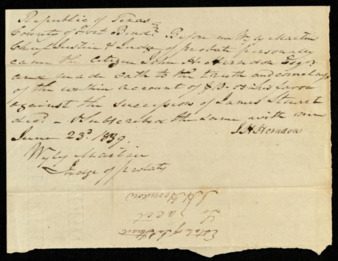 Republic of Texas
County of Fort Bend Before me W. Martin
Chief Justice & Judge of probate personally
came the citizen John H. Herndon Esqr
and made oath to the truth and
of the within account of
against the succession of James Stuart
decd. & Subscribed the same with
June 23d 1839. J. H. Herndon
Wyly Martin
Judge of probate
J. H. Herndon
To acct